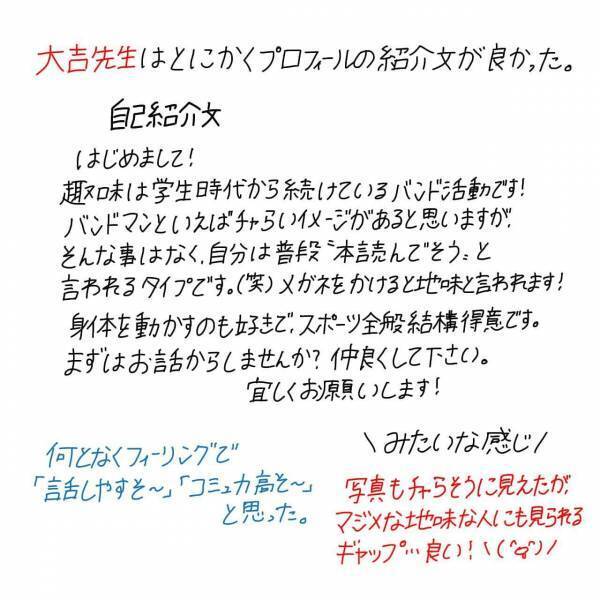 大吉先生はとにかくプロフィールの紹介文が良かった。
自己紹介文
はじめまして!
趣味は学生時代から続けているバンド活動です!
バンドマンといえばチャらいイメージがあると思いますが、
そんな事はなく、自分は普段〝本読んでそう〟と
言われるタイプです。(笑)メガネをかけると地味と言われます!
身体を動かすのも好きで、スポーツ全般結構得意です。
まずはお話からしませんか?仲良くして下さい。
宜しくお願いします!
\みたいな感じ/
何となくフィーリングで
「話しやすそ〜」「コミュ力高そ〜」
と思った。
写真もチャらそうに見えたが、
マジメな地味な人にも見られる
ギャップ…良い!\(^q^)/